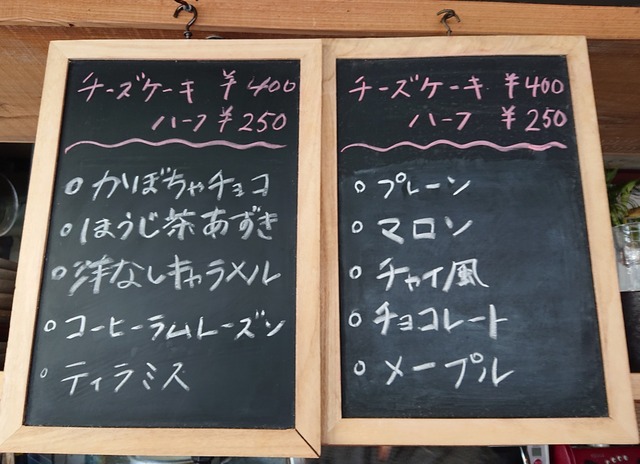 チーズケーキ ¥400
ハーフ ¥250
○ かぼちゃチョコ
○ ほうじ茶あずき
○ 洋なしキャラメル
○ コーヒーラムレーズン
○ ティラミス
チーズケーキ ¥400
ハーフ ¥250
○ プレーン
○ マロン
○ チャイ風
○ チョコレート
○ メープル